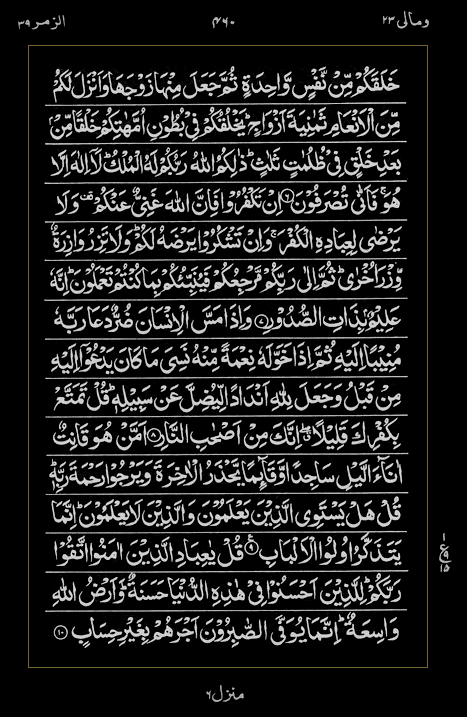 ومالی ۲۳ ۴۶۰ الزمر ۳۹
خَلَقَكُمْ مِّنْ نَّفْسٍ وَّاحِدَةٍ ثُمَّ جَعَلَ مِنْهَا زَوْجَهَا وَاَنْزَلَ لَكُمْ
مِّنَ الْاَنْعَامِ ثَمٰنِيَةَ اَزْوَاجٍ ؕ يَخْلُقُكُمْ فِىْ بُطُوْنِ اُمَّهٰتِكُمْ خَلْقًا مِّنْۢ
بَعْدِ خَلْقٍ فِىْ ظُلُمٰتٍ ثَلٰثٍ ؕ ذٰلِكُمُ اللّٰهُ رَبُّكُمْ لَهُ الْمُلْكُ ؕ لَاۤ اِلٰهَ اِلَّا
هُوَ ۚ فَاَنّٰى تُصْرَفُوْنَ ﴿۶﴾ اِنْ تَكْفُرُوْا فَاِنَّ اللّٰهَ غَنِىٌّ عَنْكُمْ ۫ وَلَا
يَرْضٰى لِعِبَادِهِ الْكُفْرَ ۚ وَاِنْ تَشْكُرُوْا يَرْضَهُ لَكُمْ ؕ وَلَا تَزِرُ وَازِرَةٌ
وِّزْرَ اُخْرٰى ؕ ثُمَّ اِلٰى رَبِّكُمْ مَّرْجِعُكُمْ فَيُنَبِّئُكُمْ بِمَا كُنْتُمْ تَعْمَلُوْنَ ؕ اِنَّهٗ
عَلِيْمٌۢ بِذَاتِ الصُّدُوْرِ ﴿۷﴾ وَاِذَا مَسَّ الْاِنْسَانَ ضُرٌّ دَعَا رَبَّهٗ
مُنِيْبًا اِلَيْهِ ثُمَّ اِذَا خَوَّلَهٗ نِعْمَةً مِّنْهُ نَسِىَ مَا كَانَ يَدْعُوْۤا اِلَيْهِ
مِنْ قَبْلُ وَجَعَلَ لِلّٰهِ اَنْدَادًا لِّيُضِلَّ عَنْ سَبِيْلِهٖ ؕ قُلْ تَمَتَّعْ
بِكُفْرِكَ قَلِيْلًا ۖ اِنَّكَ مِنْ اَصْحٰبِ النَّارِ ﴿۸﴾ اَمَّنْ هُوَ قَانِتٌ
اٰنَآءَ الَّيْلِ سَاجِدًا وَّقَآئِمًا يَّحْذَرُ الْاٰخِرَةَ وَيَرْجُوْا رَحْمَةَ رَبِّهٖ ؕ
قُلْ هَلْ يَسْتَوِى الَّذِيْنَ يَعْلَمُوْنَ وَالَّذِيْنَ لَا يَعْلَمُوْنَ ؕ اِنَّمَا
يَتَذَكَّرُ اُولُوا الْاَلْبَابِ ﴿۹﴾ قُلْ يٰعِبَادِ الَّذِيْنَ اٰمَنُوا اتَّقُوْا
رَبَّكُمْ ؕ لِلَّذِيْنَ اَحْسَنُوْا فِىْ هٰذِهِ الدُّنْيَا حَسَنَةٌ ؕ وَاَرْضُ اللّٰهِ
وَاسِعَةٌ ؕ اِنَّمَا يُوَفَّى الصّٰبِرُوْنَ اَجْرَهُمْ بِغَيْرِ حِسَابٍ ﴿۱۰﴾
۱
ع
۹
۱۵
منزل ۶